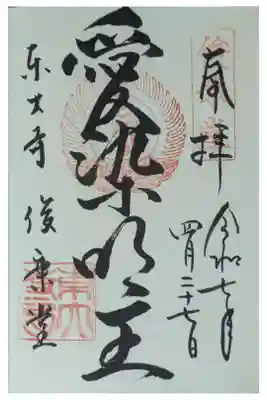 奉拝
令和七年
四月二十七日
愛染明王
東大寺 俊乗堂